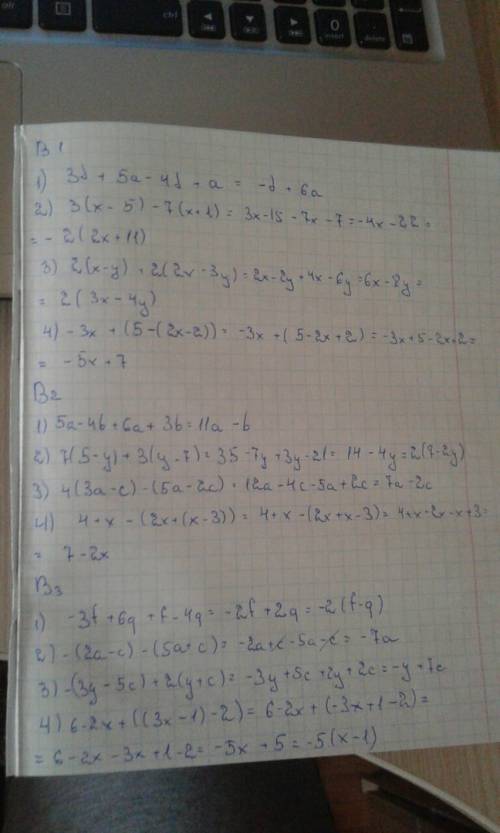 В 1
1) 3d + 5a - 4d + a = -d + 6a
2) 3(x - 5) - 7(x+1) = 3x-15 - 7x - 7 = -4x - 22 =
= - 2(2x+11)
3) 2(x-y) + 2(2x - 3y) = 2x-2y+4x-6y=6x-8y=
= 2(3x-4y)
4) - 3x + (5-(2x-2)) = -3x+(5-2x+2) = -3x+5-2x+2=
= -5x+7
В2
1) 5a-4b+6a+3b=11a-b
2) 7(5-y)+3(y-7)=35-7y+3y-21=14-4y=2(7-2y)
3) 4(3a-c)-(5a-2c)=12a-4c-5a+2c=7a-2c
4) 4+x-(2x+(x-3))=4+x-(2x+x-3)=4+x-2x-x+3=
= 7-2x
В3
1) -3f+6q+f-4q=-2f+2q=-2(f-q)
2) -(2a-c)-(5a+c)=-2a+c-5a-c=-7a
3) -(3y-5c)+2(y+c)=-3y+5c+2y+2c=-y+7c
4) 6-2x+((3x-1)-2)=6-2x+(-3x+1-2)=
= 6-2x-3x+1-2=-5x+5=-5(x-1)
ctrl
0
insert
delete